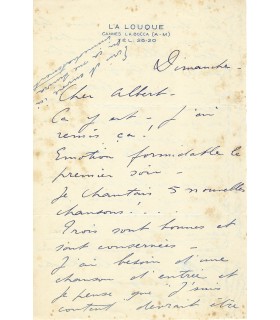 LA LOUQUE
CANNES LA BOCCA (A-M)
TEL. 25-20
Dimanche -
Cher Albert -
Ça y est - j'ai
remis ça !
Emotion formidable le
premier soir -
Je chantais 5 nouvelles
chansons . . . .
Trois sont bonnes et
sont conservées -
J'ai besoin d'une
chanson d'entrée et
je pense que "J'suis
content" devrait être